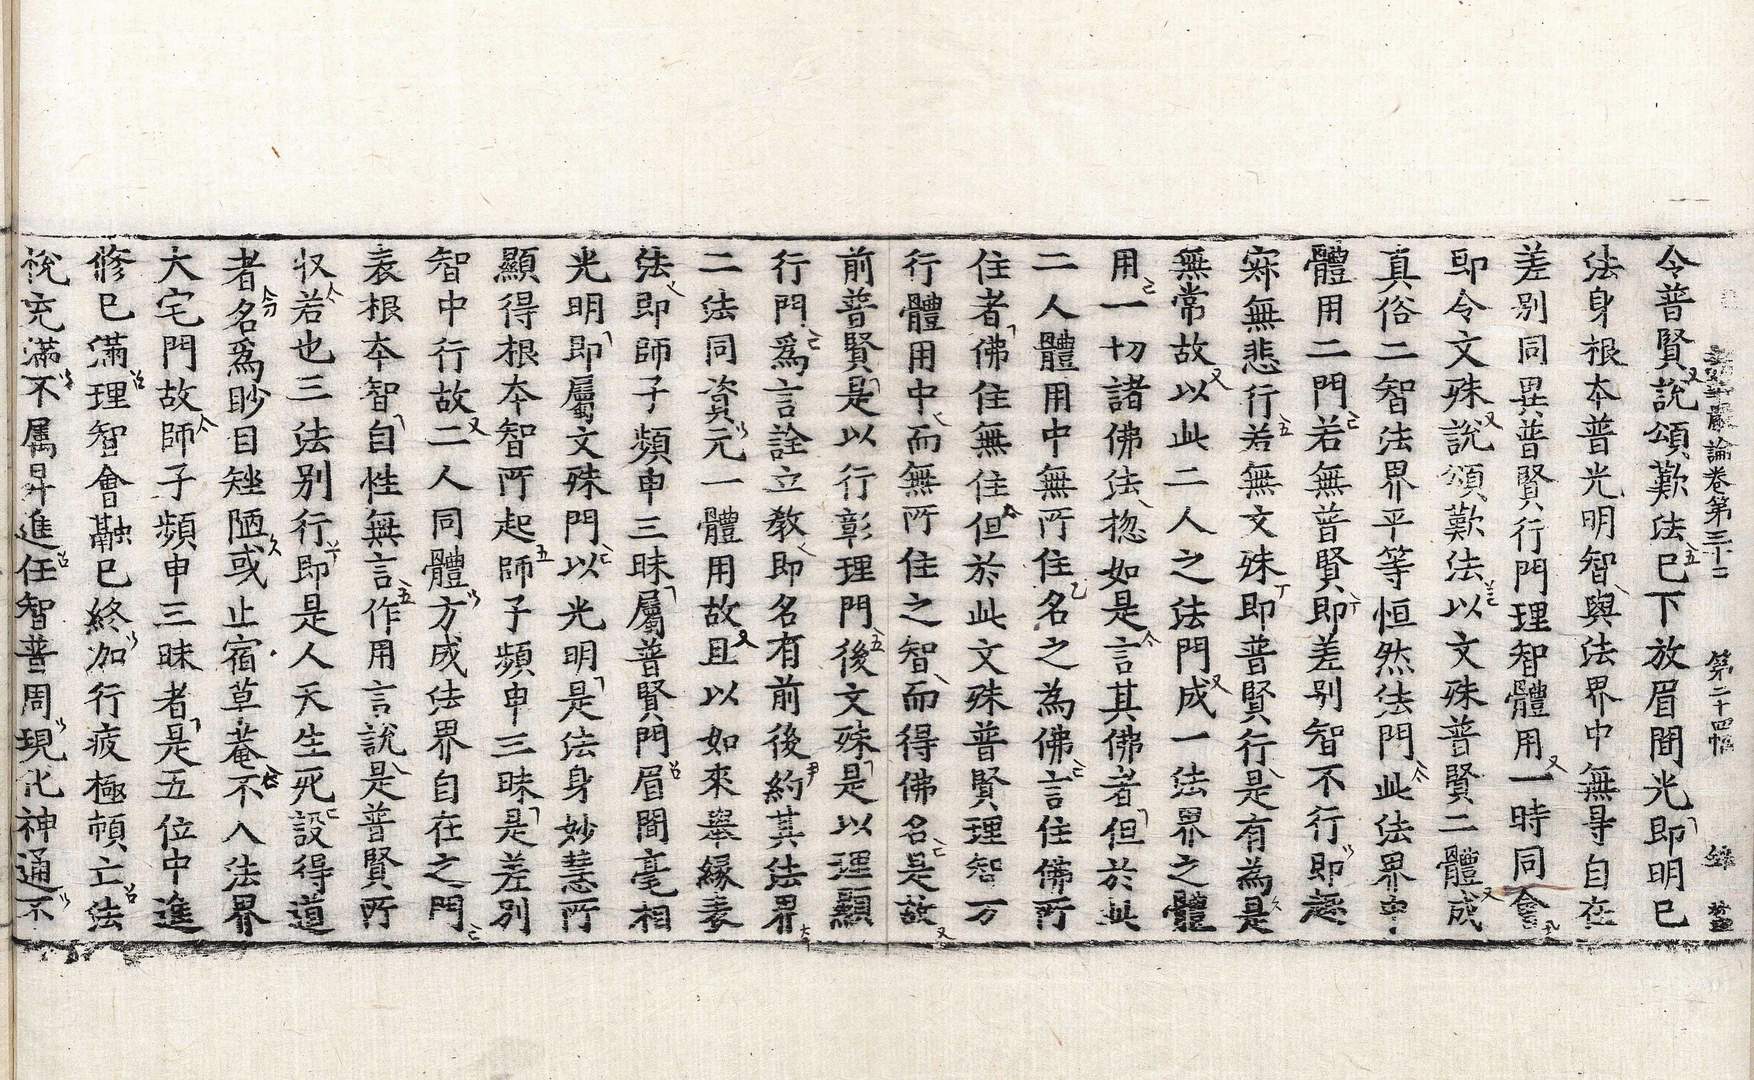 華嚴論卷第三十二 第二十四幅
令普賢說頌歎法已下放眉間光即明已
法身根本普光明智與法界中無㝵自在
差别同異普賢行門理智體用一時同會
即令文殊說頌歎法以文殊普賢二體成
真俗二智法界平等恒然法門此法界中
體用二門若無普賢即差别智不行即無
㝎無悲行若無文殊即普賢行是有為是
無常故以此二人之法門成一法界之體
用一切諸佛法㧾如是言其佛者但於此
二人體用中無所住名之為佛言住佛所
住者佛住無住但於此文殊普賢理智万
行體用中而無所住之智而得佛名是故
前普賢是以行彰理門後文殊是以理顯
行門爲言詮立教即名有前後約其法界
二法同資元一體用故且以如來舉緣表
法即師子頻申三昧屬普賢門眉間毫相
光明即屬文殊門以光明是法身妙慧所
顯得根本智所起師子頻申三昧是差别
智中行故二人同體方成法界自在之門
表根本智自性無言作用言說是普賢所
収若也三法别行即是人天生死設得道
者名爲眇目矬陋或止宿草菴不入法界
大宅門故師子頻申三昧者是五位中進
修已滿理智會融已終加行疲極頓亡法
悅充滿不属昇進任智普周現化神通不